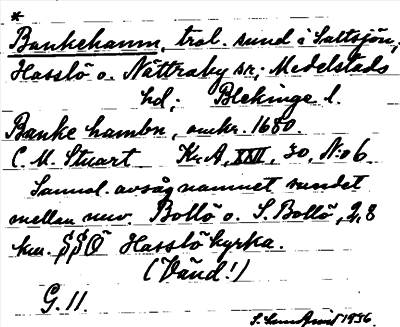 *
Bankehamn, trol. sund i Saltsjön,
Hasslö o. Nättraby sr; Medelstads
hd; Blekinge l.
Banke hambn, omkr. 1680.
C. M. Stuart Kr. A, XXII, 30, N:o 6
Sannol. avsåg namnet sundet
mellan nuv. Bollö o. S. Bollö, 2,8
km. SSÖ Hasslö kyrka.
(Vänd!)
G. 11.
1936